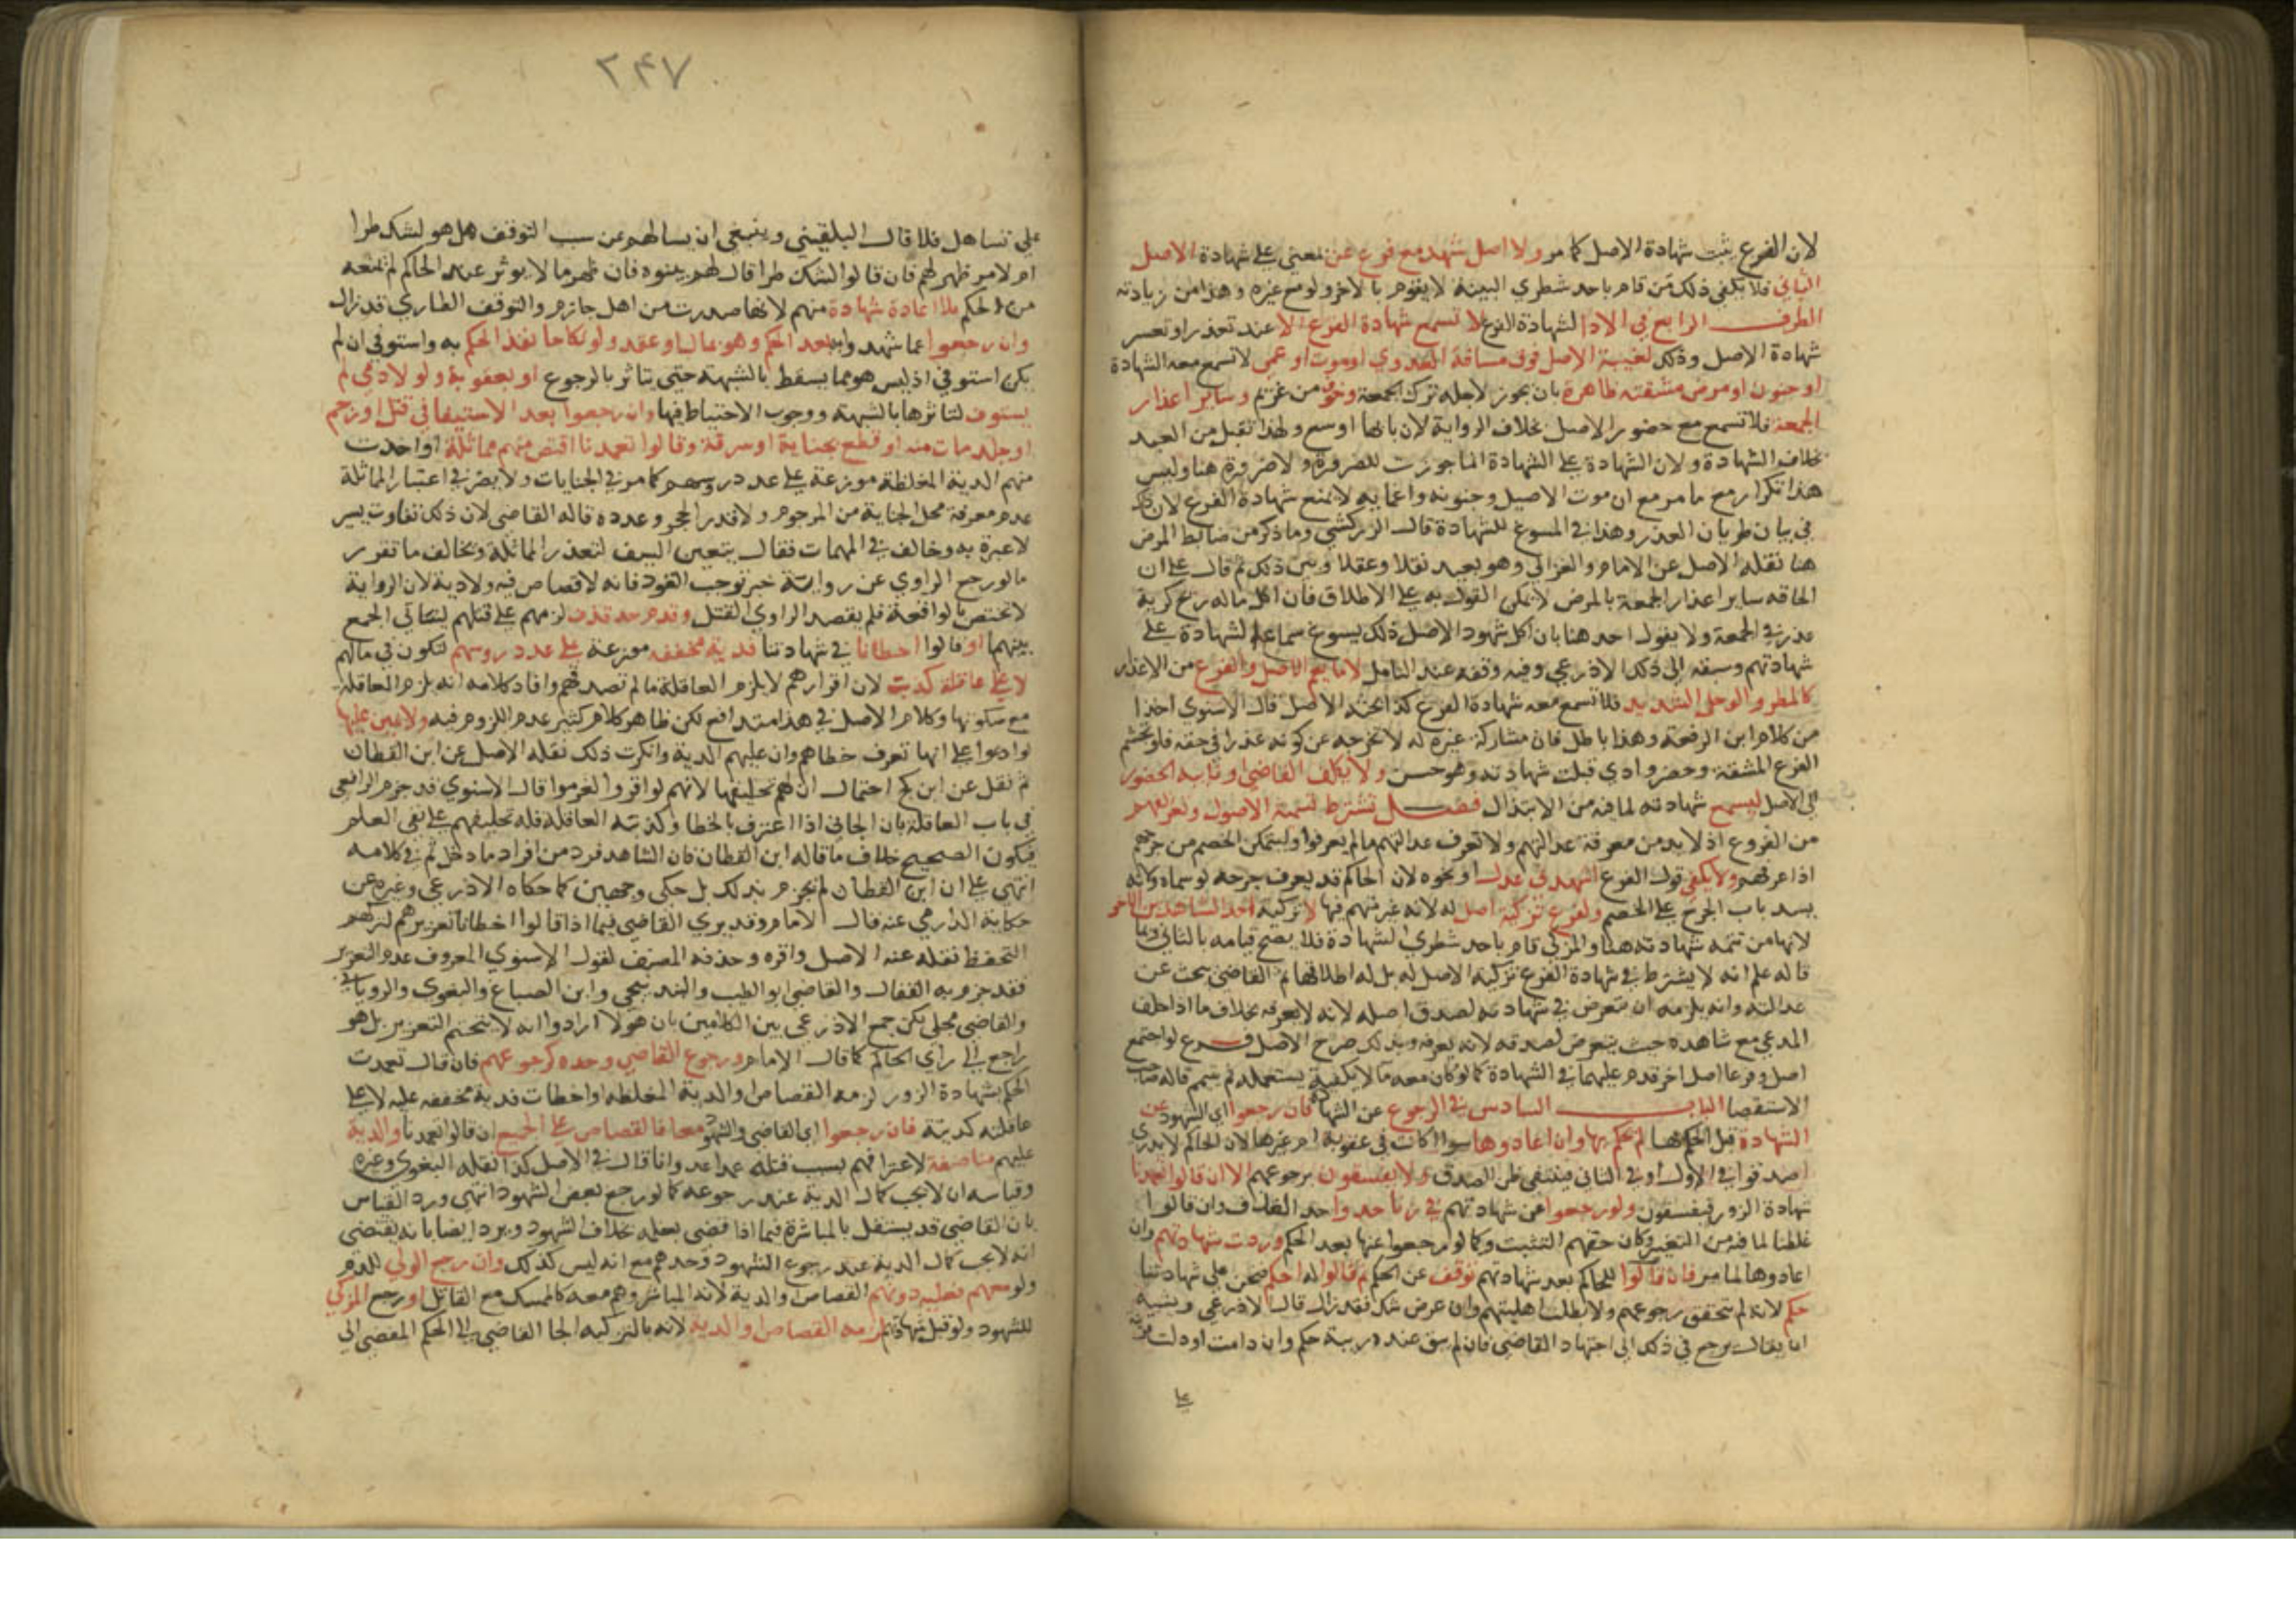 لان الفرع يثبت شهادة الاصل كما مر ولا اصل شهد مع فرع عن معنى على شهادة الاصل
الثاني فلا يكفي ذلك من قام باحد شطري البينة لا يقوم بالاخر ولو مع غيره وهذا من زيادته
الطرف الرابع في الادا لشهادة الفرع لا تسمع شهادة الفرع الا عند تعذر او تعسر
شهادة الاصل وذلك لغيبة الاصل فوق مسافة العدوي او موت او عمى لا تسمع معه الشهادة
او جنون او مرض مشقته ظاهرة بان يجوز لاجله ترك الجمعة وخوف من غريم وساير اعذار
الجمعة فلا تسمع مع حضور الاصل بخلاف الرواية لان بابها اوسع ولهذا تقبل من العبد
بخلاف الشهادة ولان الشهادة على الشهادة انما جوزت للضرورة ولا ضرورة هنا وليس
هذا تكرار مع ما مر مع ان موت الاصيل وجنونه واغمايه لا يمنع شهادة الفرع لان ذلك
في بيان طريان العذر وهذا في المسوغ للشهادة قال الزركشي وما ذكر من ضابط المرض
هنا نقله الاصل عن الامام والغزالي وهو بعيد نقلا وعقلا وبين ذلك ثم قال على ان
الحاقه ساير اعذار الجمعة بالمرض لا يمكن القول به على الاطلاق فان اكل ماله ريح كريه
عذر في الجمعة ولا يقول احد هنا بان اكل شهود الاصل ذلك يسوغ سماع الشهادة على
شهادتهم وسبقه الى ذلك الاذرعي وفيه وقفة عند التامل لا ما يعم الاصل والفرع من الاعذار
كالمطر والوحل الشديد فلا تسمع معه شهادة الفرع كذا بحثه الاصل قال الاسنوي اخذا
من كلام ابن الرفعة وهذا باطل فان مشاركة غيره له لا تخرجه عن كونه عذرا في حقه فلو تجشم
الفرع المشقة وحضر وادي قبلت شهادته وهو حسن ولا يكلف القاضي او نايبه الحضور
الى الاصل ليسمع شهادته لما فيه من الابتذال فصل تشترط تسمية الاصول وتعريفهم
من الفروع اذ لا بد من معرفة عدالتهم ولا تعرف عدالتهم ما لم يعرفوا وليتمكن الخصم من جرحهم
اذا عرفهم ولا يكفي قول الفرع اشهدني عدل او نحوه لان الحاكم قد يعرف جرحه لو سماه ولانه
يسد باب الجرح على الخصم ولفرع تزكية اصل له لانه غير متهم فيها لا تزكية احد الشاهدين الآخر
لانها من تتمة شهادته هنا والمزكي قام باحد شطري الشهادة فلا يصح قيامه بالثاني وبما
قاله علم انه لا يشترط في شهادة الفرع تزكية الاصل له بل له اطلاقها ثم القاضي يبحث عن
عدالته وانه لا يلزمه ان يتعرض في شهادته لصدق اصله لانه لا يعرفه بخلاف ما اذا حلف
المدعي مع شاهده حيث يتعرض لصدقه لانه يعرفه وبذلك صرح الاصل فرع لو اجتمع
اصل وفرعا اصل اخر قدم عليهما في الشهادة كما لو كان معه ما لا يكفيه يستعمله ثم يتيمم قاله صاحب
الاستقصا الباب السادس في الرجوع عن الشهادة فان رجعوا اي الشهود عن
الشهادة قبل الحكم بها لم يحكم بها وان اعادوها سوا اكانت في عقوبة ام غيرها لان الحاكم لا يدري
اصدقوا في الاول او في الثاني فينتفي ظن الصدق ولا يفسقون برجوعهم الا ان قالوا تعمدنا
شهادة الزور فيفسقون ولو رجعوا عن شهادتهم في زنا حدوا حد القذف وان قالوا
غلطنا لما فيه من التعيير وكان حقهم التثبت وكما لو رجعوا عنها بعد الحكم وردت شهادتهم وان
اعادوها لما مر فان قالوا للحاكم بعد شهادتهم توقف عن الحكم ثم قالوا له احكم فنحن على شهادتنا
حكم لانه لم يتحقق رجوعهم ولا بطلت اهليتهم وان عرض شك فقد زال قال الاذرعي ويشبه
ان يقال يرجع في ذلك الى اجتهاد القاضي فان لم يبق عنده ريبة حكم وان دامت او دلت قرينة
على
٢٤٧
على تساهل فلا قال البلقيني وينبغي ان يسالهم عن سبب التوقف هل هو لشك طرا
ام لامر ظهر لهم فان قالوا الشك طرا قال لهم بينوه فان ظهر ما لا يوثر عند الحاكم لم يمنعه
من الحكم بلا اعادة شهادة منهم لانها صدرت من اهل جازم والتوقف الطاري قد زال
وان رجعوا عما شهدوا به بعد الحكم وهو بمال او عقد ولو نكاحا نفذ الحكم به واستوفي ان لم
يكن استوفي اذ ليس هو مما يسقط بالشبهة حتى يتاثر بالرجوع او بعقوبة ولو لادمي لم
يستوف لتاثرها بالشبهة ووجوب الاحتياط فيها وان رجعوا بعد الاستيفا في قتل او رجم
او جلد مات منه او قطع بجناية او سرقة وقالوا تعمدنا اقتص منهم مماثلة او اخذت
منهم الدية المغلظة موزعة على عدد روسهم كما مر في الجنايات ولا يضر في اعتبار المماثلة
عدم معرفة محل الجناية من المرجوم ولا قدر الحجر وعدده قاله القاضي لان ذلك تفاوت يسير
لا عبرة به وخالف في المهمات فقال يتعين السيف لتعذر المماثلة ويخالف ما تقرر
ما لو رجع الراوي عن رواية خبر توجب القود فانه لا قصاص فيه ولا دية لان الرواية
لا تختص بالواقعة فلم يقصد الراوي القتل وقدم حد قذف لزمهم على قتلهم ليتاتى الجمع
بينهما او قالوا اخطانا في شهادتنا فدية مخففة موزعة على عدد روسهم تكون في مالهم
لا على عاقلة كذبت لان اقرارهم لا يلزم العاقلة ما لم تصدقهم وافاد كلامه انه يلزم العاقلة
مع سكوتها وكلام الاصل في هذا متدافع لكن ظاهر كلام كثير عدم اللزوم فيه ولا يمين عليها
لو ادعوا على انها تعرف خطاهم وان عليهم الدية وانكرت ذلك نقله الاصل عن ابن القطان
ثم نقل عن ابن كج احتمال ان لهم تحليفها لانهم لو اقروا لغرموا قال الاسنوي قد جزم الرافعي
في باب العاقلة بان الجاني اذا اعترف بالخطا وكذبته العاقلة فله تحليفهم على نفي العلم
فيكون الصحيح خلاف ما قاله ابن القطان فان الشاهد فرد من افراد ما دخل ثم في كلامه
انتهى على ان ابن القطان لم يجزم بذلك بل حكى وجهين كما حكاه الاذرعي وغيره عن
حكاية الدارمي عنه قال الامام وقد يري القاضي فيما اذا قالوا اخطانا تعزيرهم لتركهم
التحفظ نقله عنه الاصل واقره وحذفه المصنف لقول الاسنوي المعروف عدم التعزير
فقد جزم به القفال والقاضي ابو الطيب والبندنيجي وابن الصباغ والبغوي والروياني
والقاضي مجلي لكن جمع الاذرعي بين الكلامين بان هولا ارادوا انه لا يتحتم التعزير بل هو
راجع الى راي الحاكم كما قال الامام ورجوع القاضي وحده كرجوعهم فان قال تعمدت
الحكم بشهادة الزور لزمه القصاص او الدية المغلظة او اخطات فدية مخففة عليه لا على
عاقلته كذبته فان رجعوا اي القاضي والشهود معا فالقصاص على الجميع ان قالوا تعمدنا والدية
عليهم مناصفة لاعترافهم بسبب قتله عمدا عدوانا قال في الاصل كذا نقله البغوي وغيره
وقياسه ان لا يجب كمال الدية عند رجوعه كما لو رجع بعض الشهود انتهى ورد القياس
بان القاضي قد يستقل بالمباشرة فيما اذا قضى بعلمه بخلاف الشهود ويرد ايضا بانه يقتضي
انه لا يجب كمال الدية عند رجوع الشهود وحدهم مع انه ليس كذلك وان رجع الولي للدم
ولو معهم فعليه دونهم القصاص او الدية لانه المباشر وهم معه كالممسك مع القاتل او رجع المزكي
للشهود ولو قبل شهادتهم لزمه القصاص او الدية لانه بالتزكية الجا القاضي الى الحكم المفضي الى